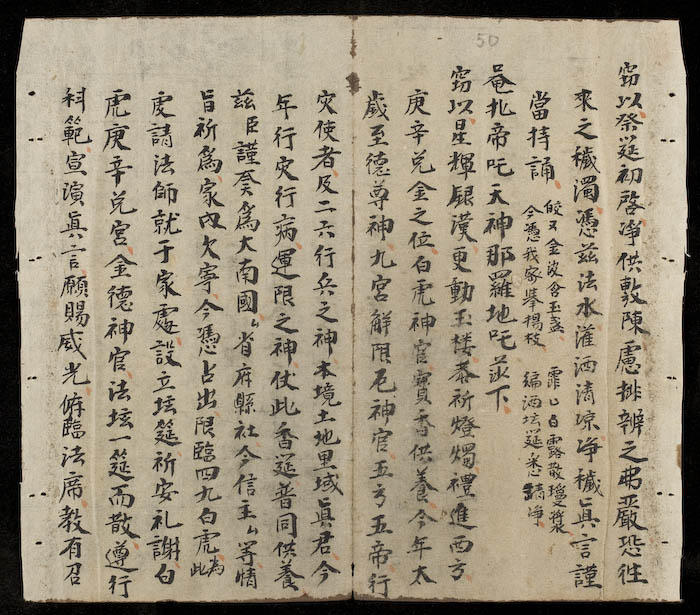 50
窃以祭筵初啓净供敷陳慮排辨之弗嚴恐徃
來之穢濁憑兹法水灌洒清凉净穢眞言謹
當持誦 皎々金波含玉蕊 霏々白露散璚漿
今憑我家攀楊枝 徧洒坛筵悉請净
唵扎帝吒天神那羅地吒莎下
窃以星輝銀漢更動玉楼恭祈燈燭禮進西方
庚辛兑金之位白虎神官寶香供養今年太
歲至德尊神九宮解限厄神官五方五帝行
灾使者及二六行兵之神本境土地里域眞君今
年行灾行病運限之神仗此香筵普同供養
兹臣謹奏爲大南國厶省府縣社今信主厶等情
旨祈爲家内欠寧今憑占出限臨四九白虎爲此
虔請法師就于家處設立坛筵祈安礼謝白
虎庚辛兑宮金德神官法坛一筵而散遵行
科範宣演眞言願賜威光俯臨法席教有召